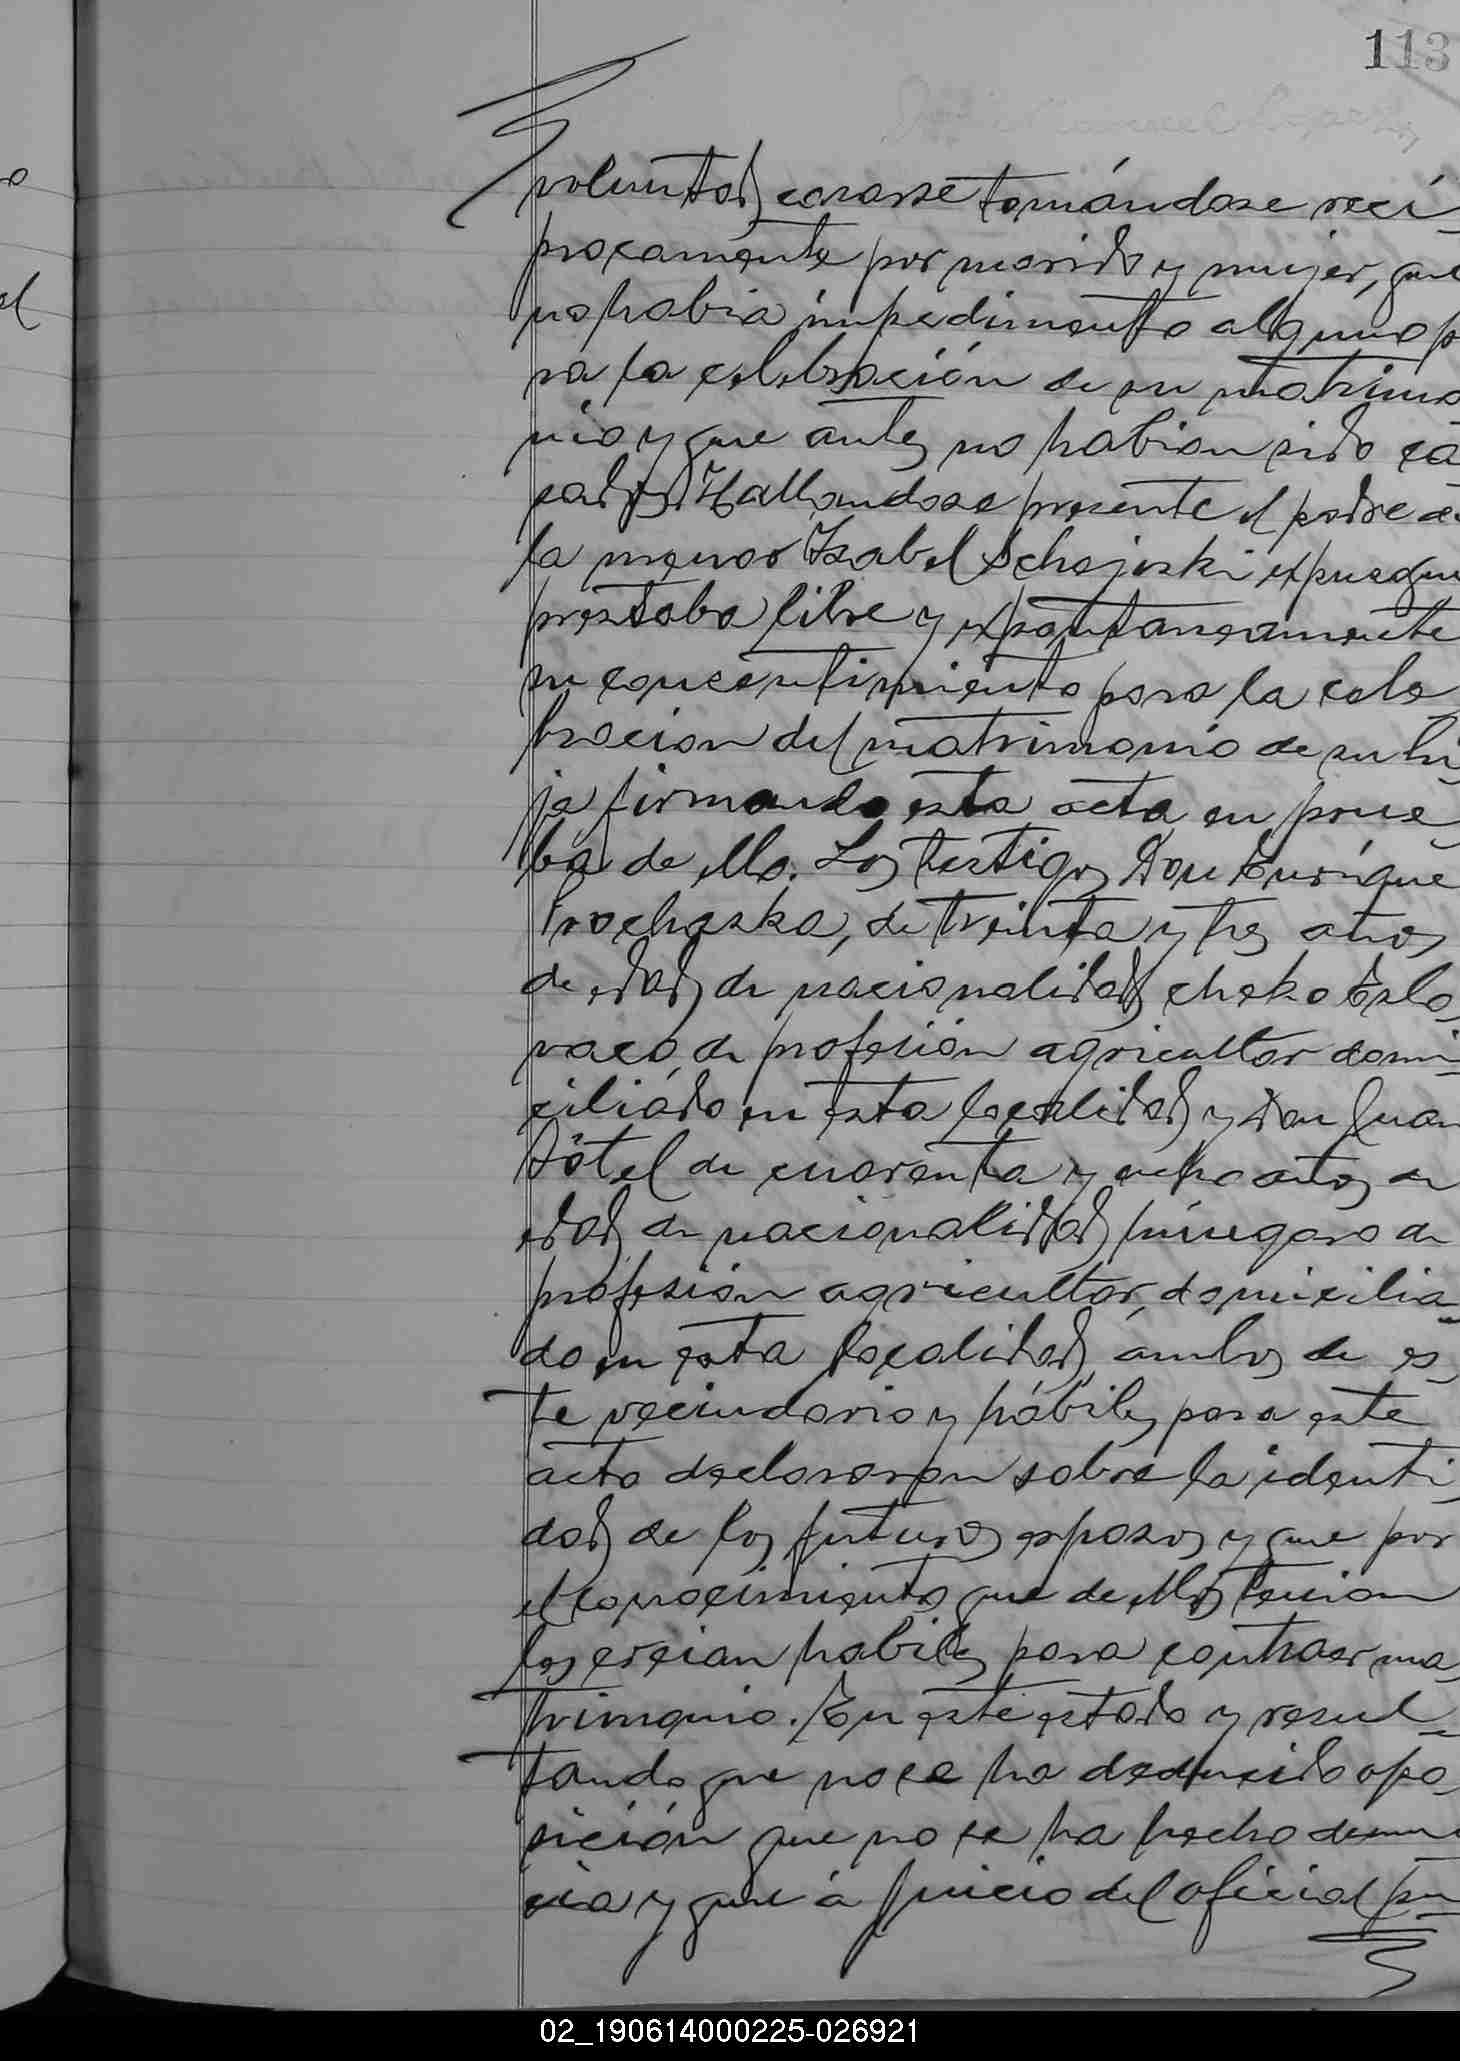 113
voluntad casarse tomándose recí
procamente por marido y mujer, que
no habia impedimento alguno p
ra la celebración de su matrimo
nio y que antes no habian sido ca
sados Hallandose presente el padre de
la menor Isabel Schejoski expuso que
prestaba libre y expontaneamente
su concentimiento para la cele
bracion del matrimonio de su hi
ja firmando esta acta en prue
ba de ello. Los testigos Don Enrique
Prochaska, de treinta y tres años
de edad de nacionalidad cheko Eslo
vaco, de profesión agricultor domi
ciliado en esta localidad y Don Juan
Sötel de cuarenta y ocho años de
edad de nacionalidad húngaro de
profesión agricultor, domicilia
do en esta localidad, ámbos de es
te vecindario y hábiles para este
acto declararon sobre la identi
dad de los futuros esposos y que por
el conocimiento que de ellos tenian
los creian habiles para contraer ma
trimonio. En este estado y resul
tando que no se ha deducido opo
sición que no se ha hecho denun
cia y que á juicio del oficial pu
02_190614000225-026921